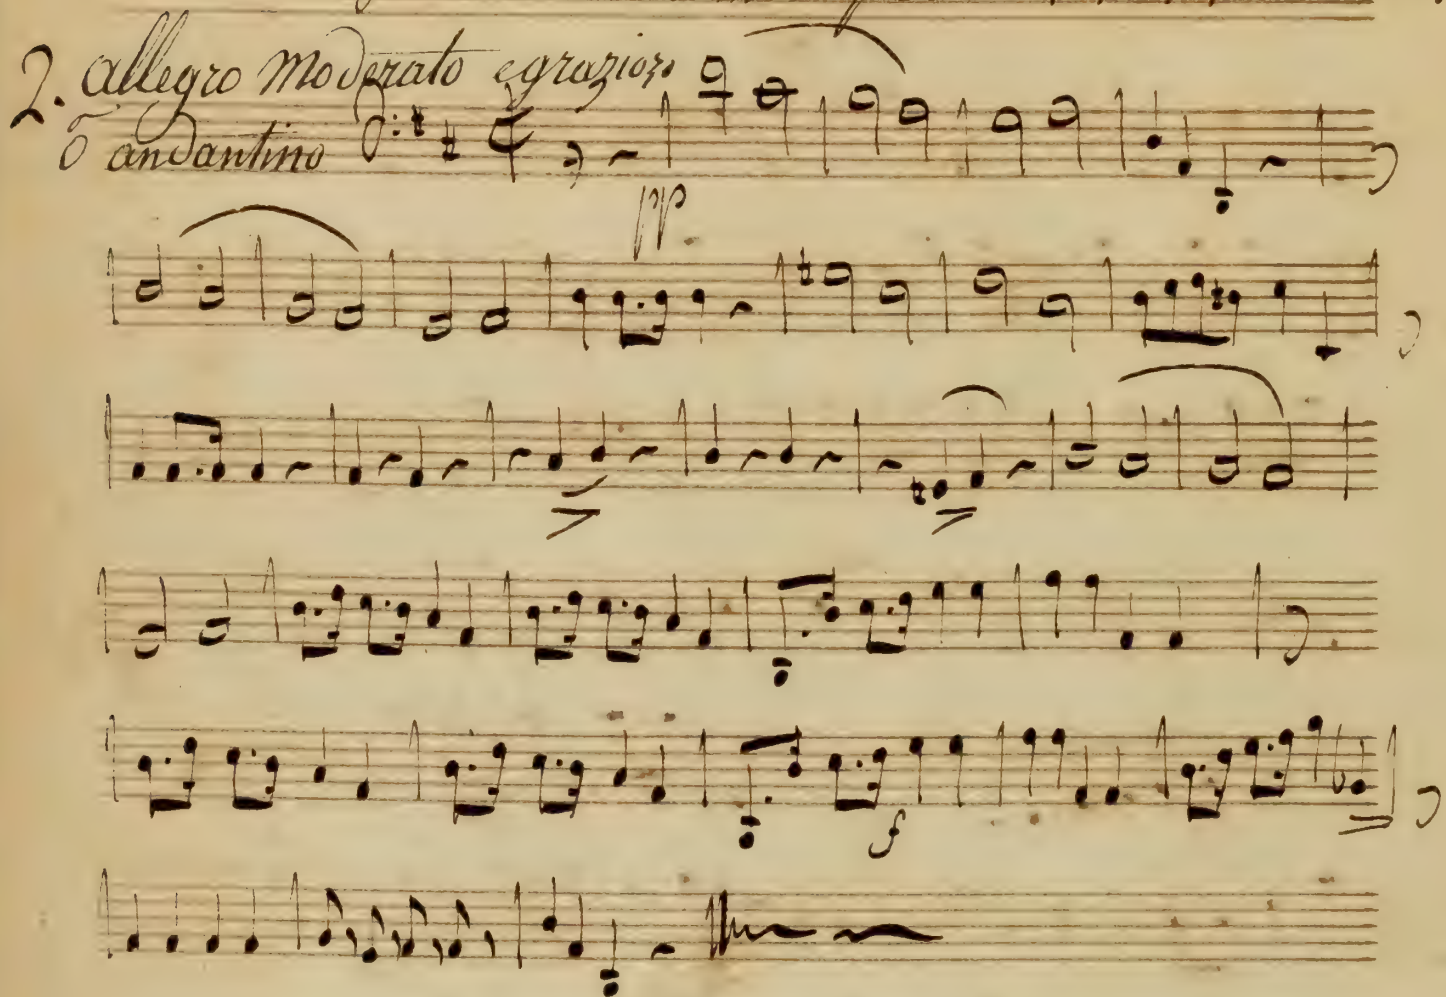 2. allegro Moderato e grazioso
ō andantino
pp
f